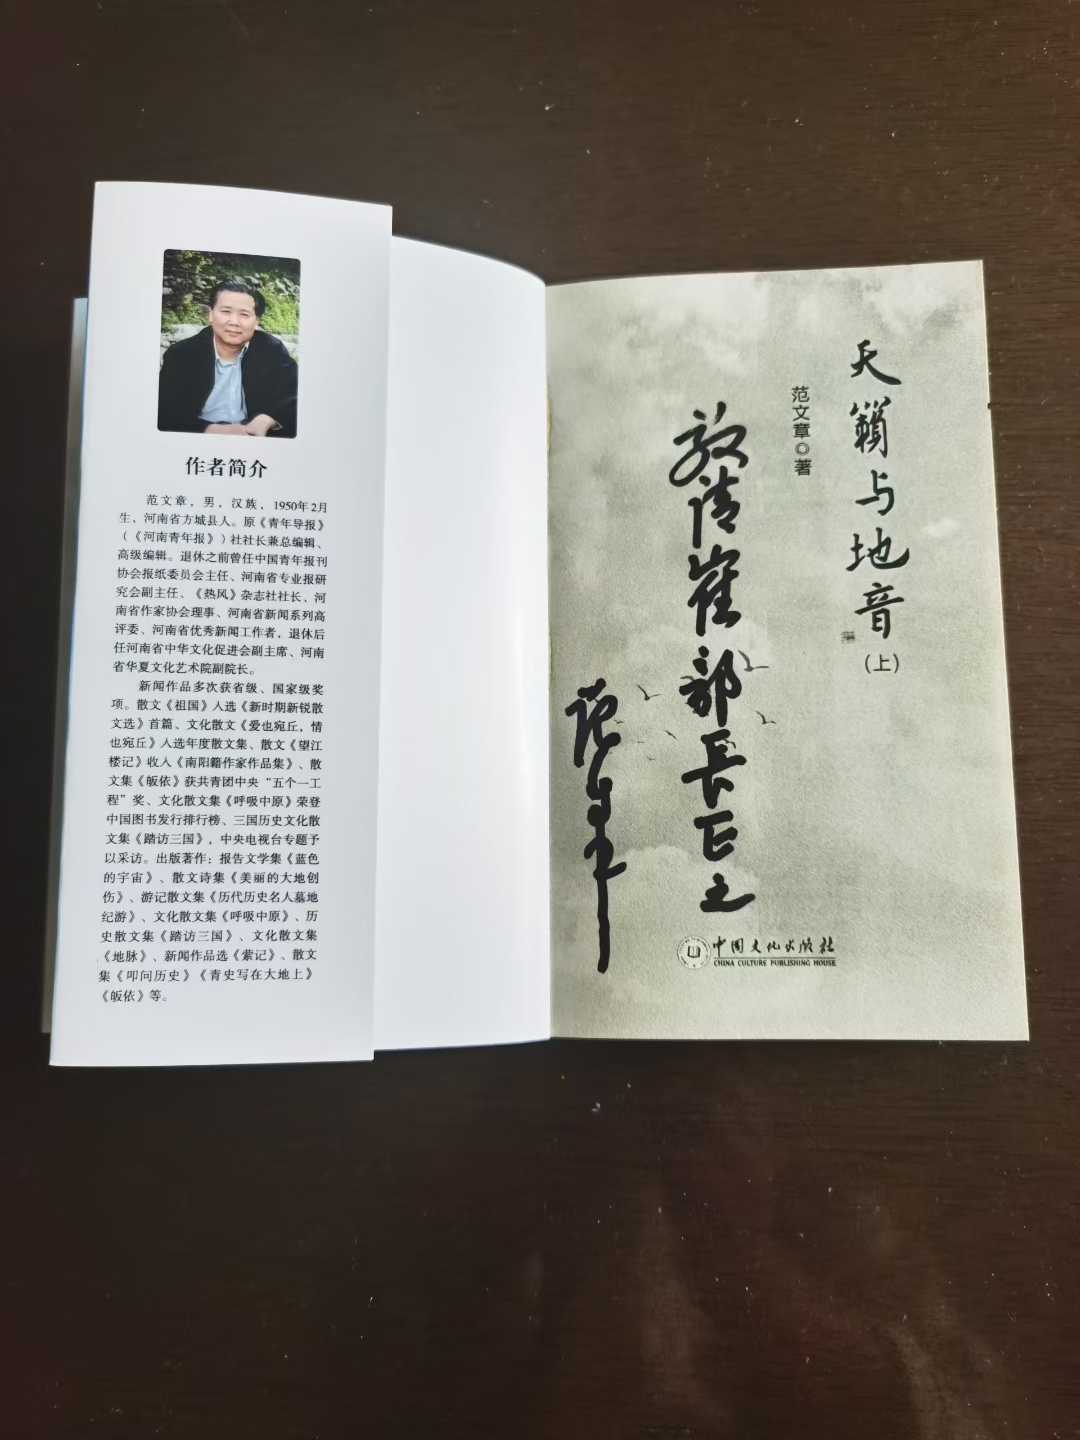 作者简介
范文章，男，汉族，1950年2月
生，河南省方城县人。原《青年导报》
（《河南青年报》）社社长兼总编辑、
高级编辑。退休之前曾任中国青年报刊
协会报纸委员会主任、河南省专业报研
究会副主任、《热风》杂志社社长、河
南省作家协会理事、河南省新闻系列高
评委、河南省优秀新闻工作者，退休后
任河南省中华文化促进会副主席、河南
省华夏文化艺术院副院长。
新闻作品多次获省级、国家级奖
项。散文《祖国》入选《新时期新锐散
文选》首篇、文化散文《爱也宛丘，情
也宛丘》入选年度散文集、散文《望江
楼记》收入《南阳籍作家作品集》、散
文集《皈依》获共青团中央“五个一工
程”奖、文化散文集《呼吸中原》荣登
中国图书发行排行榜、三国历史文化散
文集《踏访三国》，中央电视台专题予
以采访。出版著作：报告文学集《蓝色
的宇宙》、散文诗集《美丽的大地创
伤》、游记散文集《历代历史名人墓地
纪游》、文化散文集《呼吸中原》、历
史散文集《踏访三国》、文化散文集
《地脉》、新闻作品选《萦记》、散文
集《叩问历史》《青史写在大地上》
《皈依》等。
天籁与地音
（上）
范文章◎著
敬请崔部长正之
范文章
中国文化出版社
CHINA CULTURE PUBLISHING HOUSE